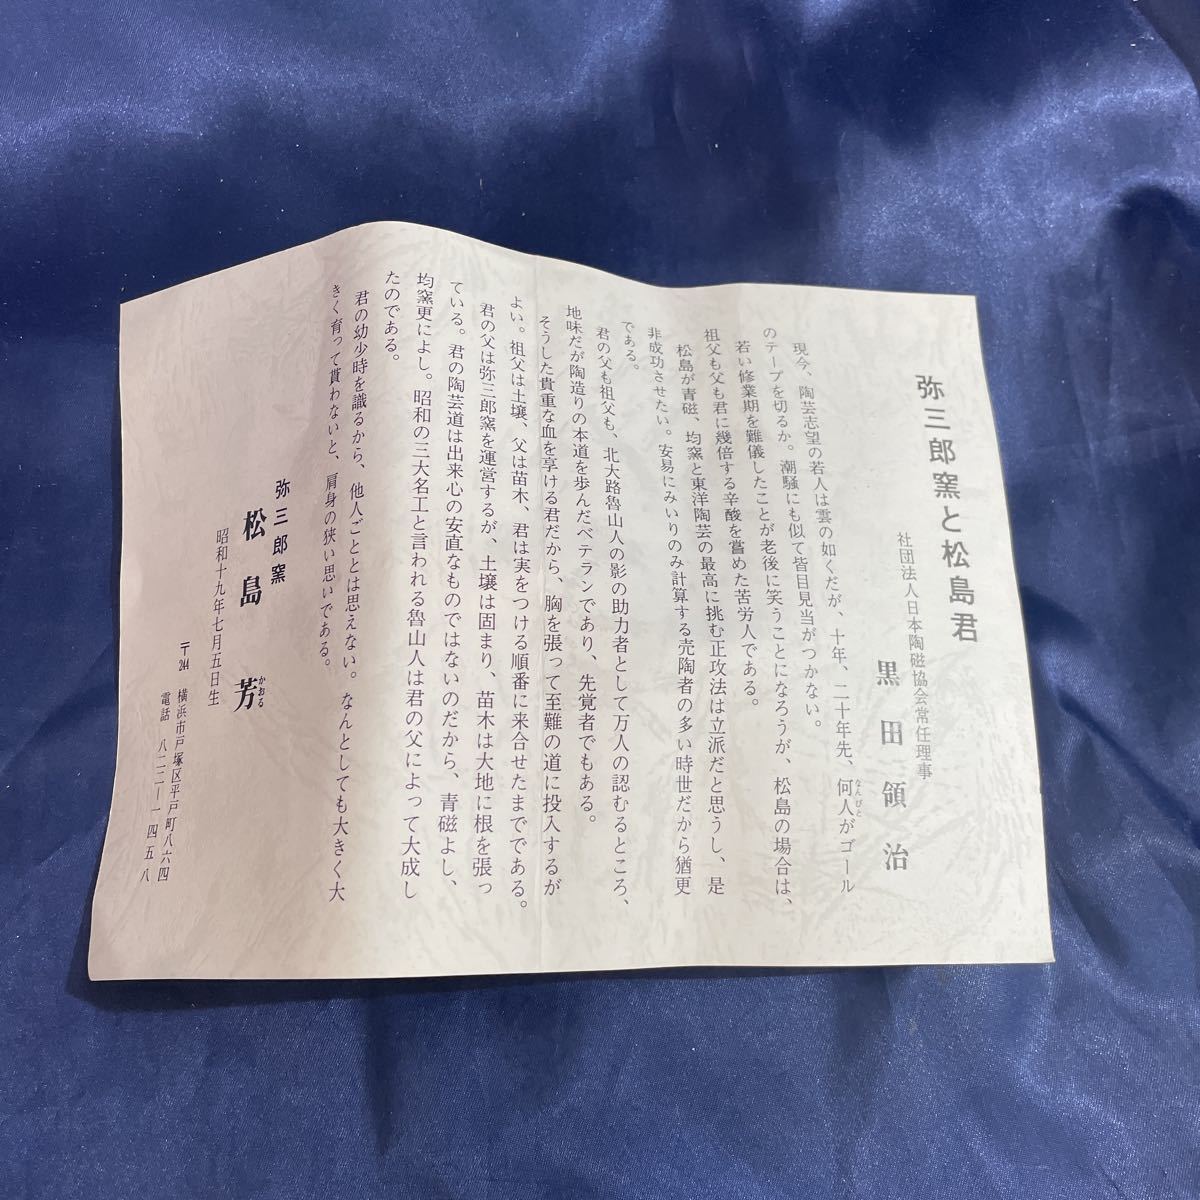 弥三郎窯と松島君
社団法人日本陶磁協会常任理事
黒田領治
現今、陶芸志望の若人は雲の如くだが、十年、二十年先、何人がゴール
なんびと
のテープを切るか。潮騒にも似て皆目見当がつかない。
若い修業期を難儀したことが老後に笑うことになろうが、松島の場合は、
祖父も父も君に幾倍する辛酸を嘗めた苦労人である。
松島が青磁、均窯と東洋陶芸の最高に挑む正攻法は立派だと思うし、是
非成功させたい。安易にみいりのみ計算する売陶者の多い時世だから猶更
である。
君の父も祖父も、北大路魯山人の影の助力者として万人の認むるところ、
地味だが陶造りの本道を歩んだベテランであり、先覚者でもある。
そうした貴重な血を享ける君だから、胸を張って至難の道に投入するが
よい。祖父は土壌、父は苗木、君は実をつける順番に来合せたまでである。
君の父は弥三郎窯を運営するが、土壌は固まり、苗木は大地に根を張っ
ている。君の陶芸道は出来心の安直なものではないのだから、青磁よし、
均窯更によし。昭和の三大名工と言われる魯山人は君の父によって大成し
たのである。
君の幼少時を識るから、他人ごととは思えない。なんとしても大きく大
きく育って貰わないと、肩身の狭い思いである。
弥三郎窯
松島芳
かおる
昭和十九年七月五日生
〒244 横浜市戸塚区平戸町八六四
電話 八二二ー一四五八